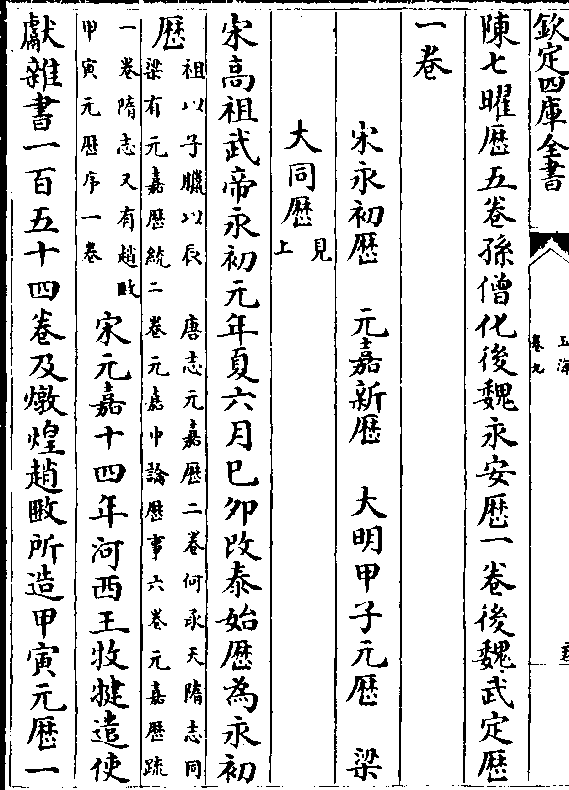 欽定四庫全書
玉海
卷九
陳七曜厯五卷孫僧化後魏永安厯一卷後魏武定厯
一卷
宋永初厯　元嘉新厯　大明甲子元厯　梁
大同厯見上
宋高祖武帝永初元年夏六月巳卯改泰始厯為永初
厯祖以子臘以辰　唐志元嘉厯二卷何承天隋志同
梁有元嘉厯統二卷元嘉中論厯事六卷元嘉厯疏
一卷隋志又有趙𢾺
甲寅元厯序一卷
宋元嘉十四年河西王牧犍遣使
獻雜書一百五十四卷及燉煌趙𢾺所造甲寅元厯一